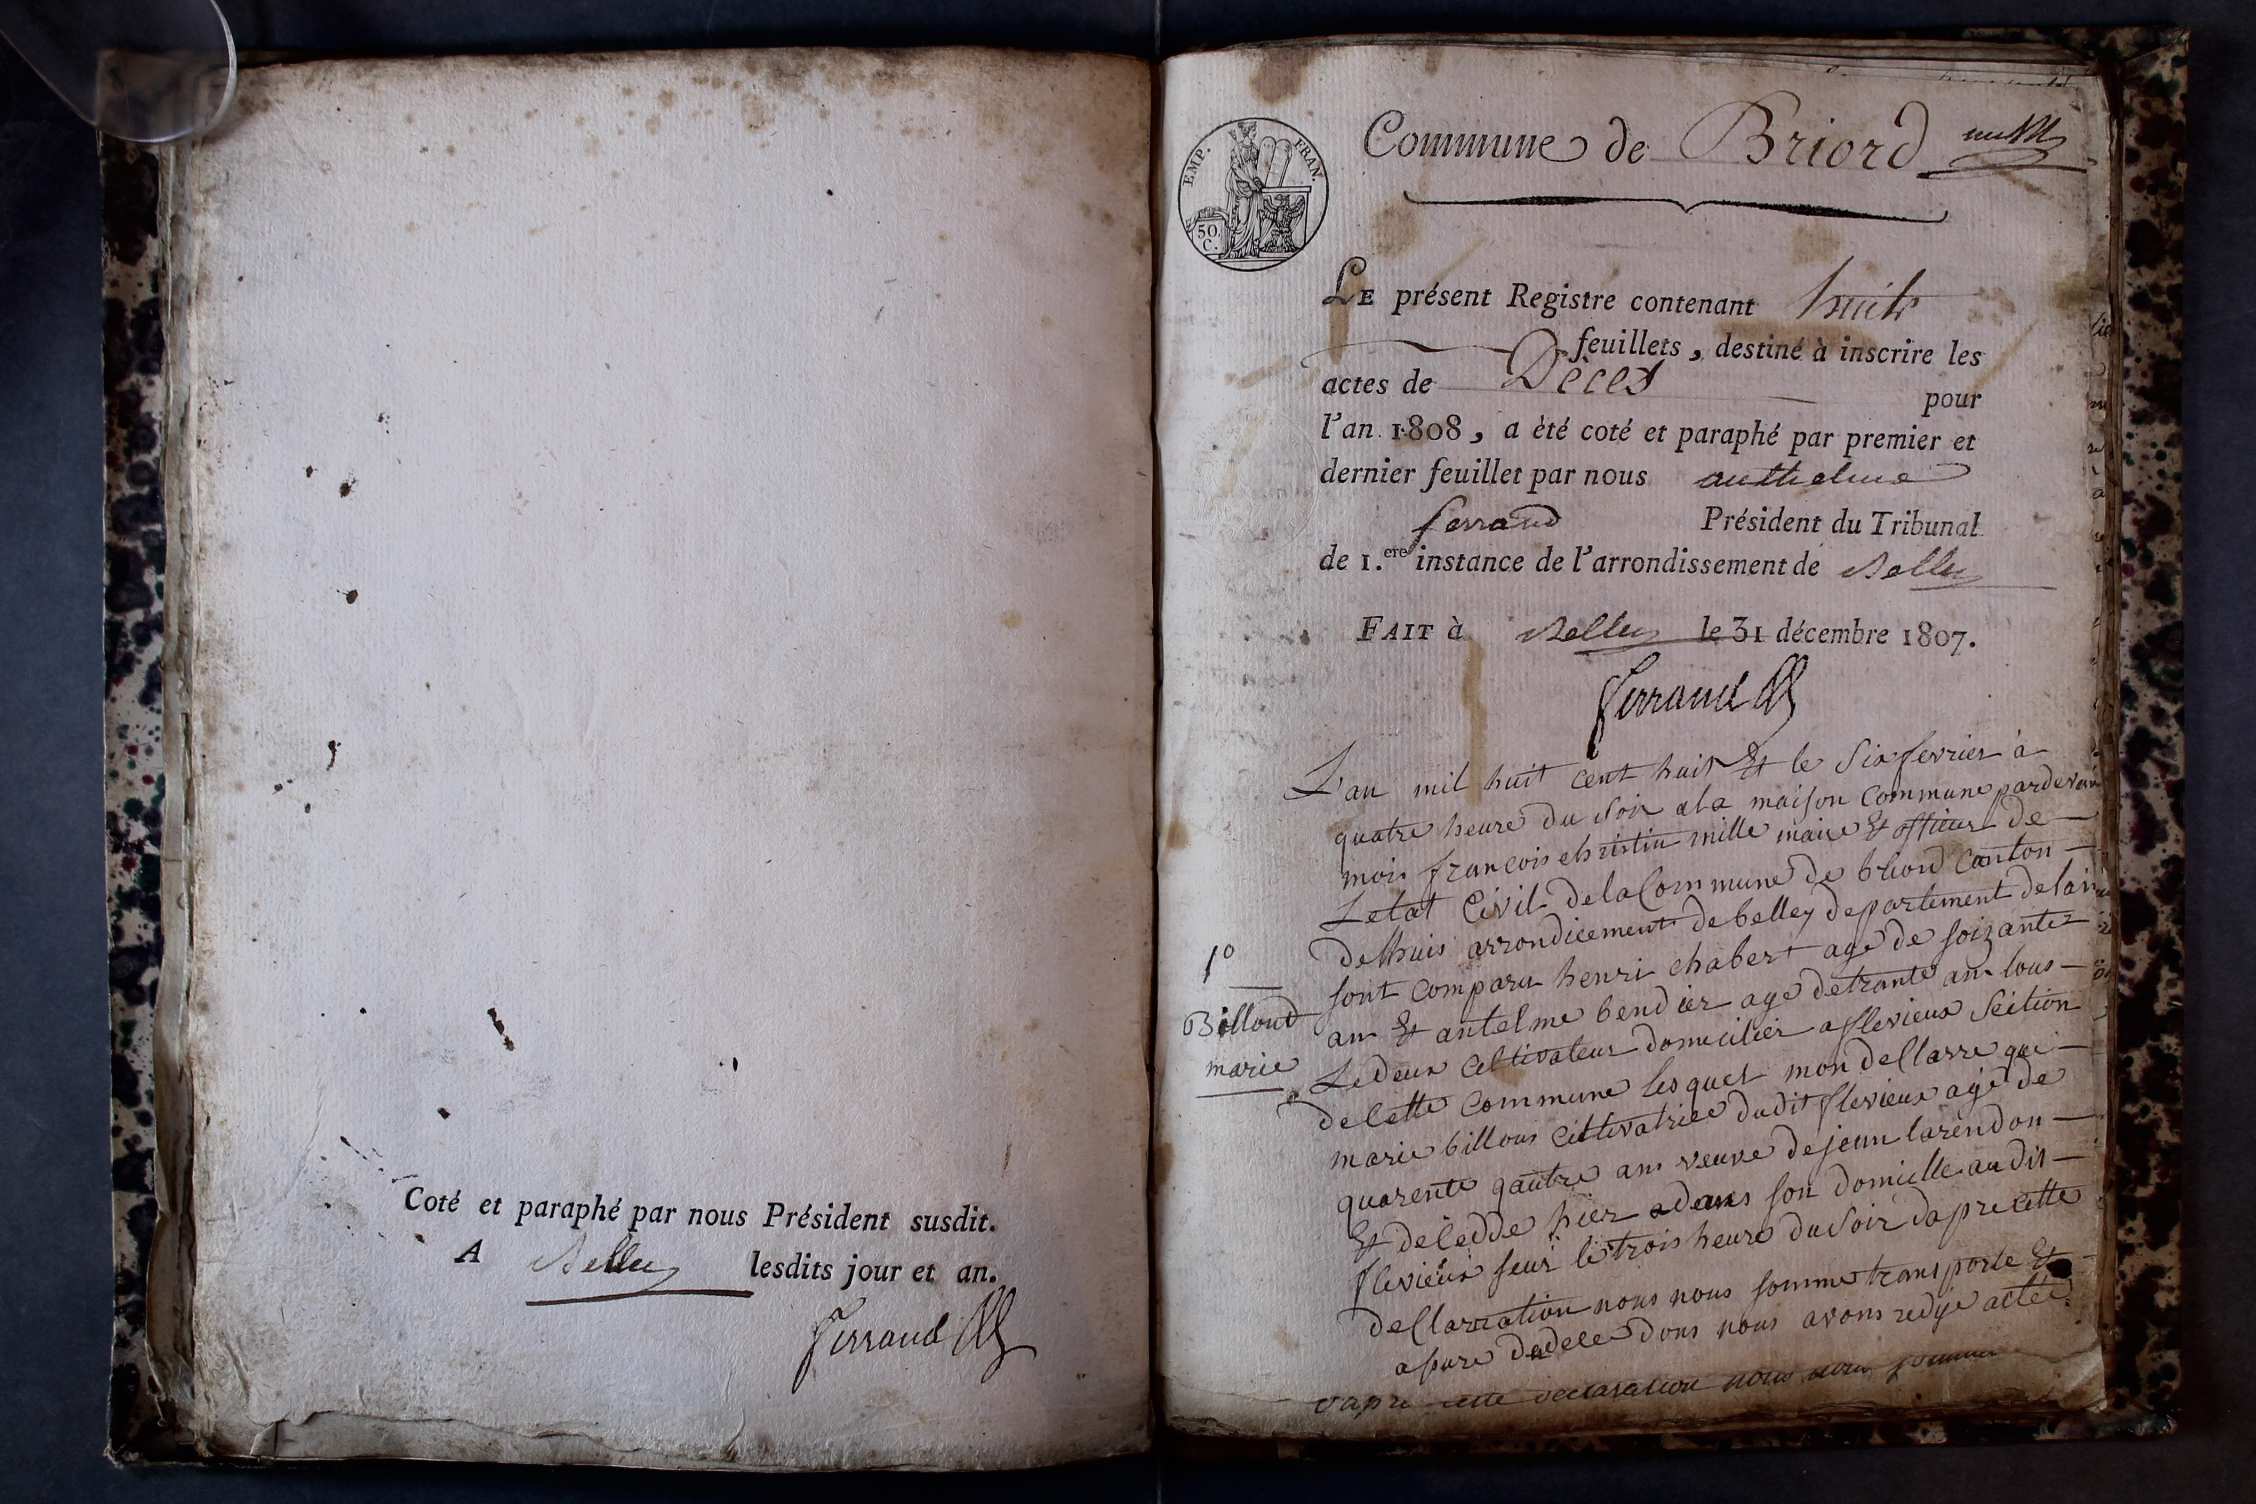 Coté et paraphé par nous Président susdit.
A Belley lesdits jour et an.
Ferrand
EMP. FRAN.
50.
C.
Commune de Briord
LE présent Registre contenant huit
feuillets, destiné à inscrire les
actes de Décès pour
l'an 1808, a été coté et paraphé par premier et
dernier feuillet par nous anthelme
ferrand Président du Tribunal
de 1.ere instance de l'arrondissement de Belley
FAIT à Belley le 31 décembre 1807.
Ferrand
1º
Billoud
marie
L'an mil huit cent huit Et le Six fevrier à
quatre heure du Soir a la maison Commune pardevan
moi francois christin mille maire & officier de
Letat Civil de la Commune de briord Canton
delhuis arrondicement de belley departement de lain
sont comparu henri chabert age de soizante
an Et antelme bendier age detrante an tous
Ledeux celtivateur domicilier a flevieux Section
de Cette Commune lesquel mon dellarre que
marie billous celtivatrice dudit flevieux agé de
quarente qautre ans veuve de jean larendon
Et decedde hier adans son domicille audit
flevieux seur le trois heure du Soir dapre cette
dellaration nous nous somme transporte Et
asure dudece dons nous avons redije acte
dapre cette declaration nous nous sommes